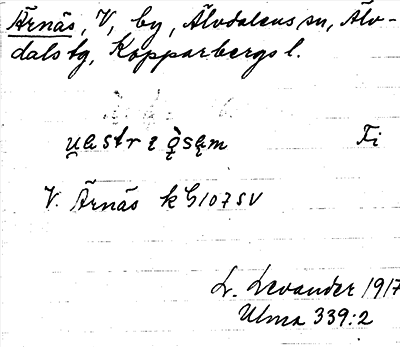 Ärnäs, V, by, Älvdalens sn, Älv-
dals tg, Kopparbergs l.
Fi
V. Ärnäs k G107 SV
L. Levander 1917
Ulma 339:2